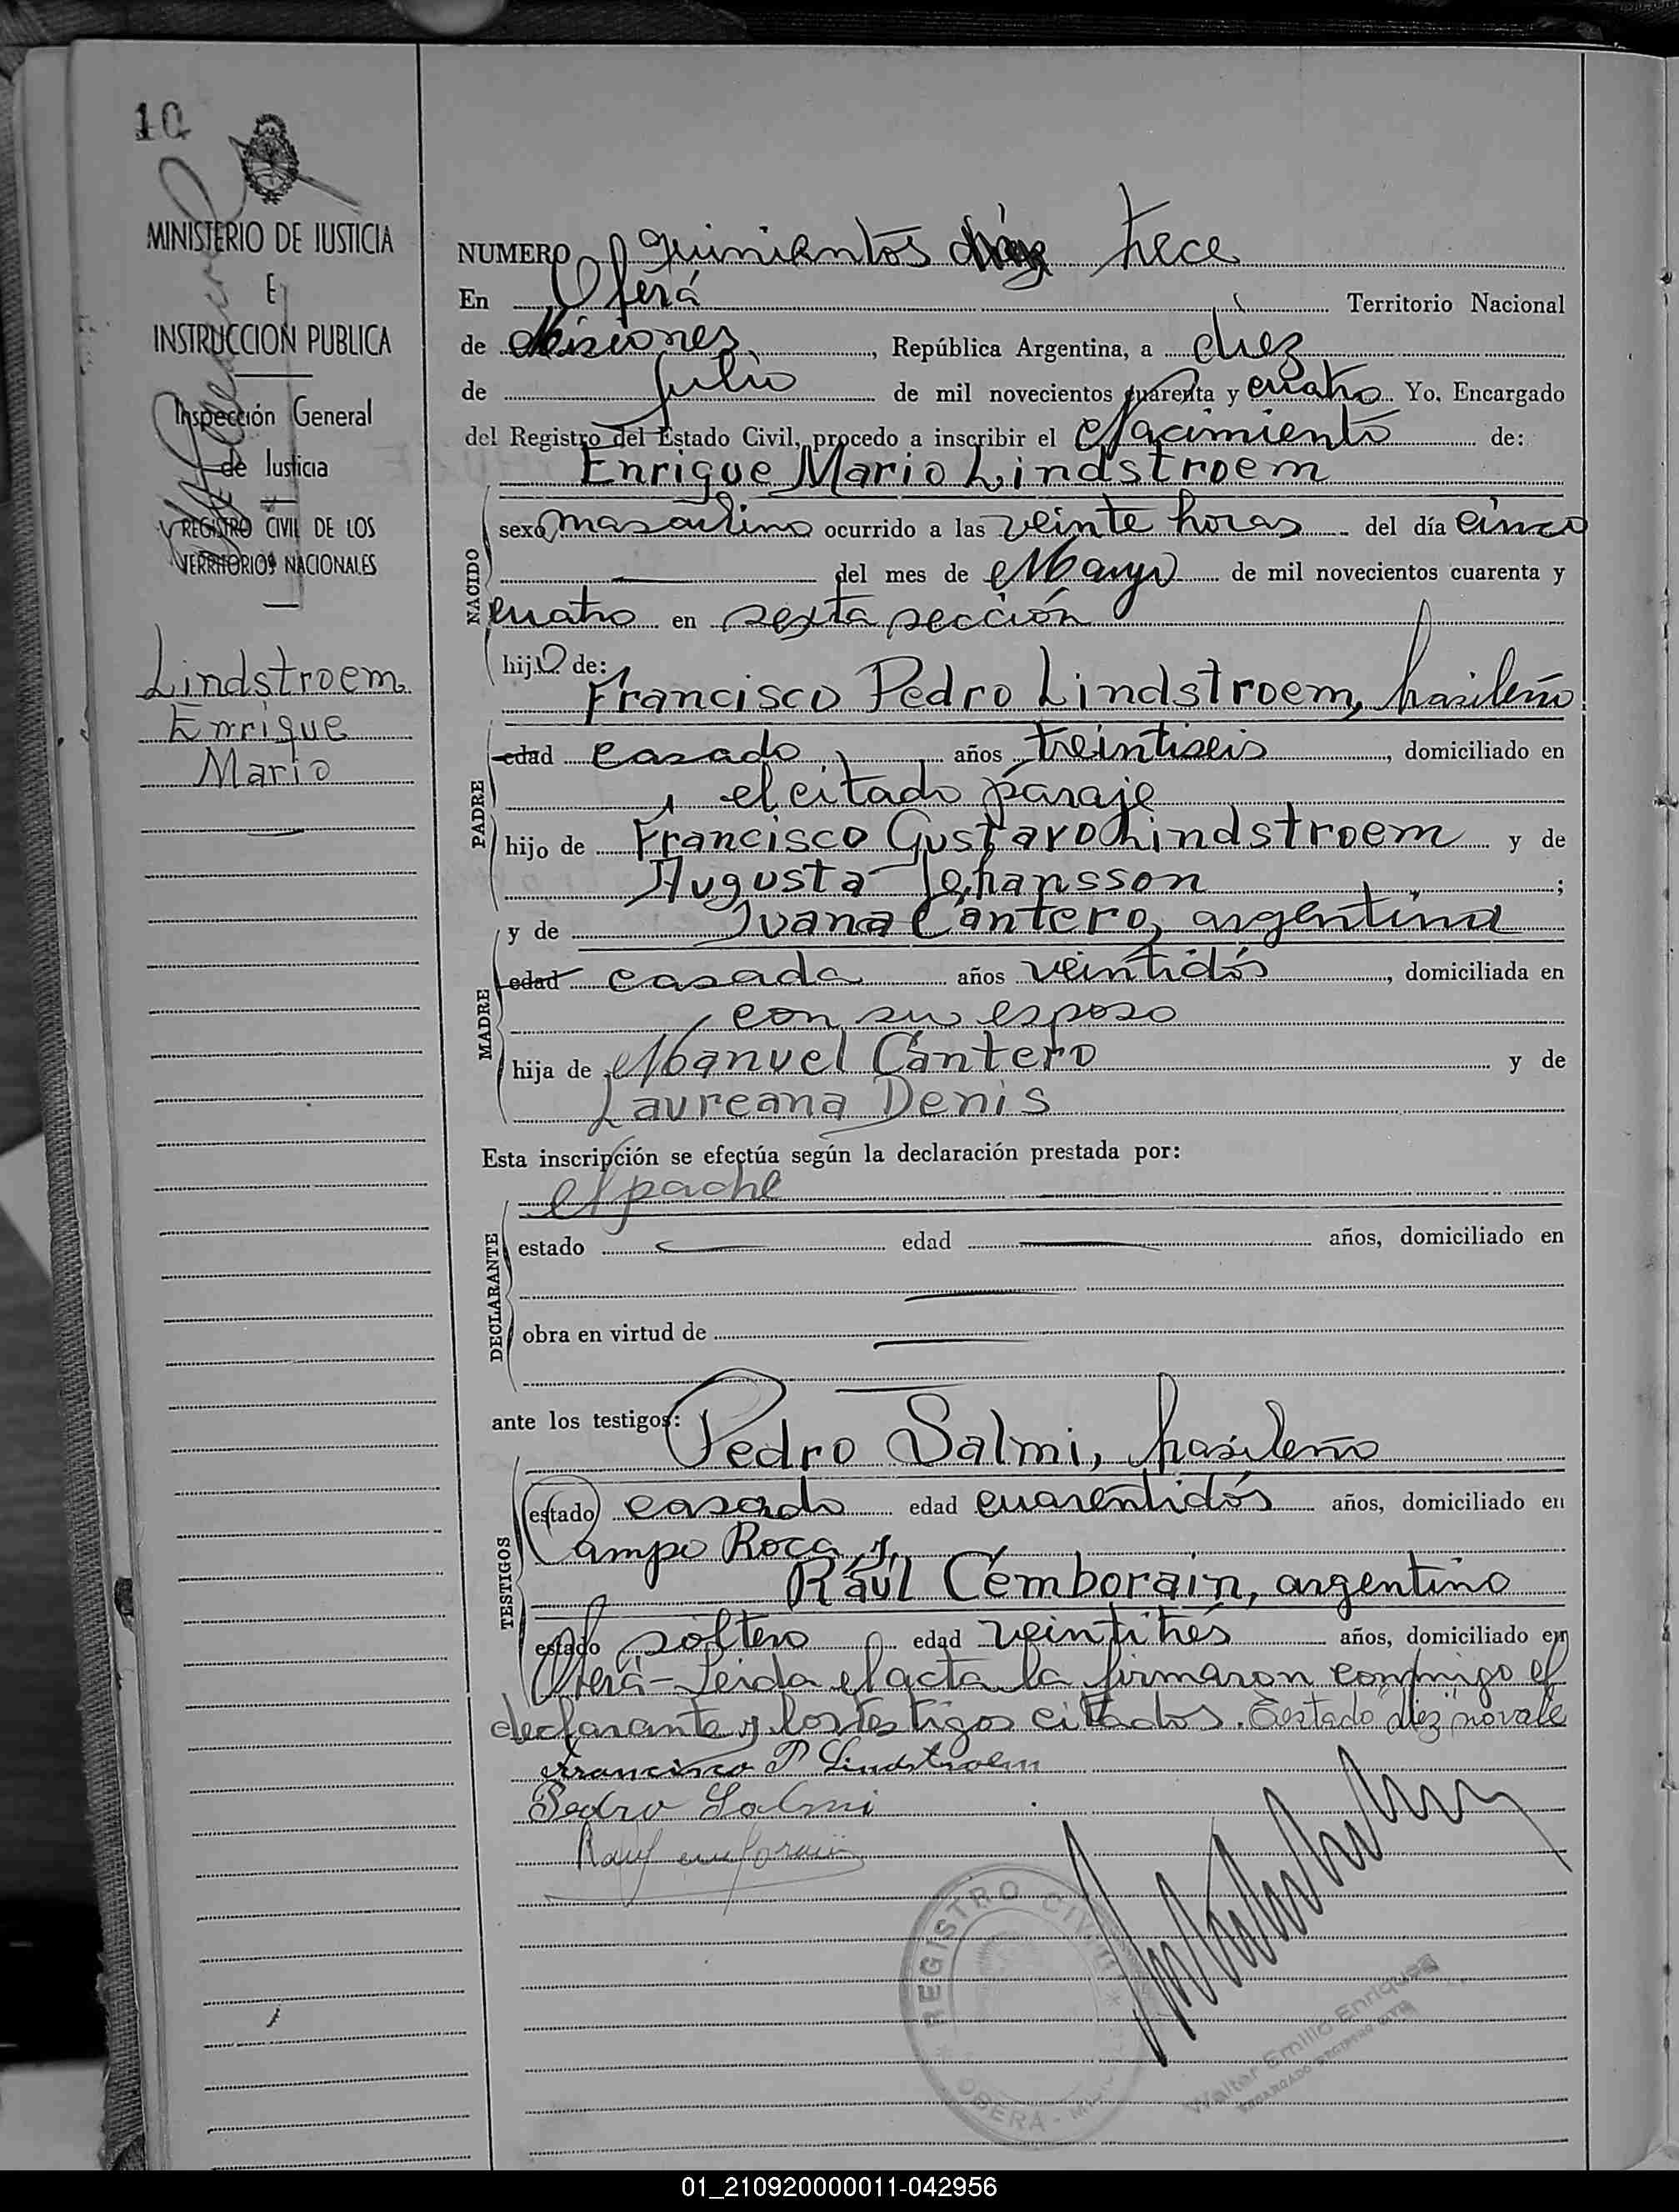 10
MINISTERIO DE JUSTICIA
E
INSTRUCCION PUBLICA
Inspección General
de Justicia
REGISTRO CIVIL DE LOS
TERRITORIOS NACIONALES
Lindstroem
Enrique
Mario
NUMERO quinientos trece
En Oberá Territorio Nacional
de Misiones, República Argentina, a diez
de Julio de mil novecientos cuarenta y cuatro Yo, Encargado
del Registro del Estado Civil, procedo a inscribir el Nacimiento de:
Enrique Mario Lindstroem
NACIDO
sexo masculino ocurrido a las veinte horas del día cinco
del mes de Mayo de mil novecientos cuarenta y
cuatro en sexta sección
hijo de:
Francisco Pedro Lindstroem, brasileño
PADRE
edad casado años treintiseis, domiciliado en
el citado paraje
hijo de Francisco Gustavo Lindstroem y de
Augusta Johansson ;
y de Juana Cantero, argentina
MADRE
edad casada años veintidós, domiciliada en
con su esposo
hija de Manuel Cantero y de
Laureana Denis
Esta inscripción se efectúa según la declaración prestada por:
el padre
DECLARANTE
estado edad años, domiciliado en
obra en virtud de
ante los testigos:
Pedro Salmi, brasileño
TESTIGOS
estado casado edad cuarentidós años, domiciliado en
Campo Roca y
Raúl Cemborain, argentino
estado soltero edad veintitrés años, domiciliado en
Oberá - Leida el acta la firmaron conmigo el
declarante y los testigos citados. Testado diez no vale
Francisco P Lindstroem
Pedro Salmi
Raul Cemborain
REGISTRO CIVIL
OBERA - 
Walter Emilio Enriquez
ENCARGADO REGISTRO CIVIL
01_210920000011-042956